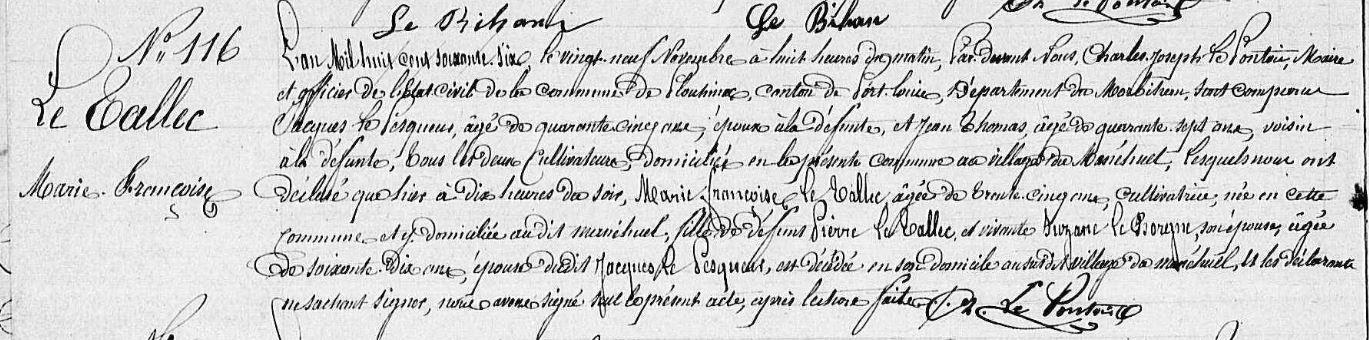 Le Bihan Le Bihan
Nº 116
Le Tallec
Marie-Françoise
L'an Mil huit cent soixante-six, le vingt-neuf Novembre à huit heures du matin, Par-devant Nous, Charles Joseph Le Pontois, Maire
et officier de l'état civil de la commune de Ploemeur, canton de Port-Louis, Département du Morbihan, sont comparus
Jacques Le Pesqueur, âgé de quarante cinq ans, époux à la défunte, et Jean Thomas, âgé de quarante-sept ans, voisin
à la défunte, tous les deux Cultivateurs, domiciliés en la présente commune au village du Manéhuel, lesquels nous ont
déclaré que hier à dix heures du soir, Marie-françoise Le Tallec âgée de trente-cinq ans, cultivatrice, née en cette
commune et y domiciliée au dit manéhuel, fille de défunt Pierre Le Tallec, et vivante Suzane Le Borgne, son épouse, âgée
de soixante-dix ans, épouse du dit Jacques Le Pesqueur, est décédée en son domicile au susdit village du manéhuel, et les déclarants
ne sachant signer, nous avons signé seul le présent acte, après lecture faite. Le Pontois